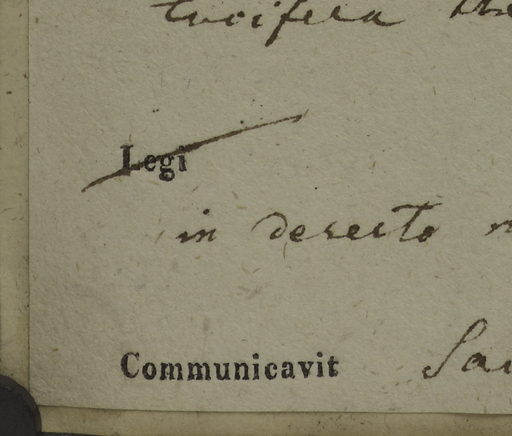 crucifera
Legi
in deserto
Communicavit